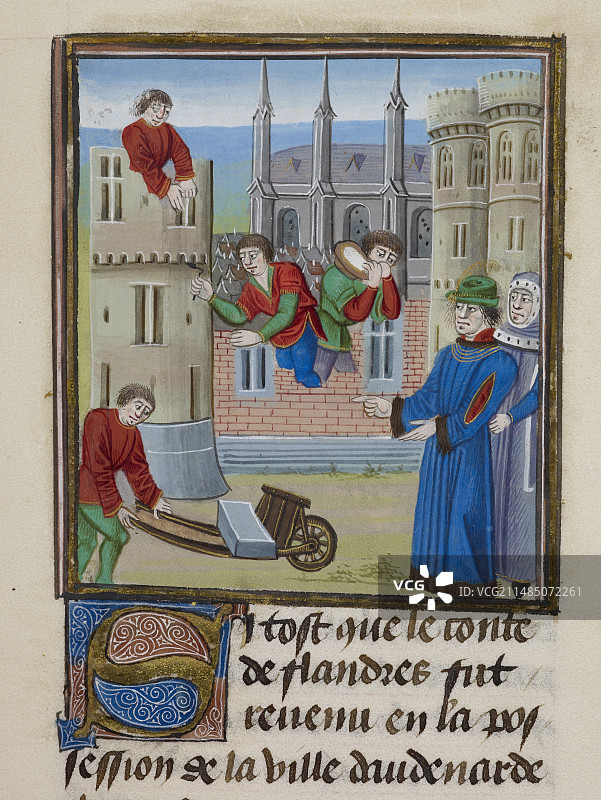 VCG
VCG.COM
ID: VCG211485072261
Si tost que le conte
de flandres fut
reuenu en la pos
session de la ville daudenarde